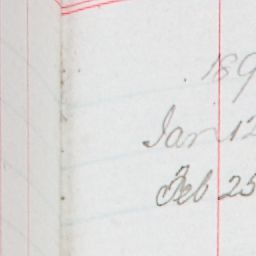 189
Jan 12
Feb 25